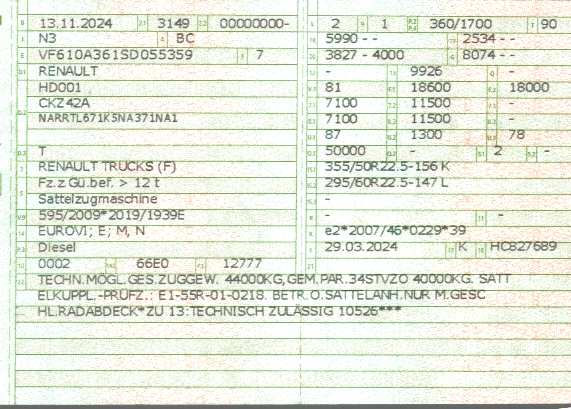 13.11.2024 3149 00000000-
N3 BC
VF610A361SD055359 7
RENAULT
HD001
CKZ42A
NARRTL671K5NA371NA1
T
RENAULT TRUCKS (F)
Fz.z.Gü.bef. > 12 t
Sattelzugmaschine
595/2009*2019/1939E
EUROVI; E; M, N
Diesel
0002 66E0 12777
2 1 360/1700 90
5990 - - 2534 - -
3827 - 4000 8074 - -
- 9926 -
81 18600 18000
7100 11500 -
7100 11500 -
87 1300 78
50000 - 2 -
355/50R22.5-156 K
295/60R22.5-147 L
-
- -
e2*2007/46*0229*39
29.03.2024 K HC827689
TECHN.MÖGL.GES.ZUGGEW. 44000KG,GEM.PAR.34STVZO 40000KG. SATT
ELKUPPL.-PRÜFZ.: E1-55R-01-0218. BETR.O.SATTELANH.NUR M.GESC
HL.RADABDECK*ZU 13:TECHNISCH ZULÄSSIG 10526***